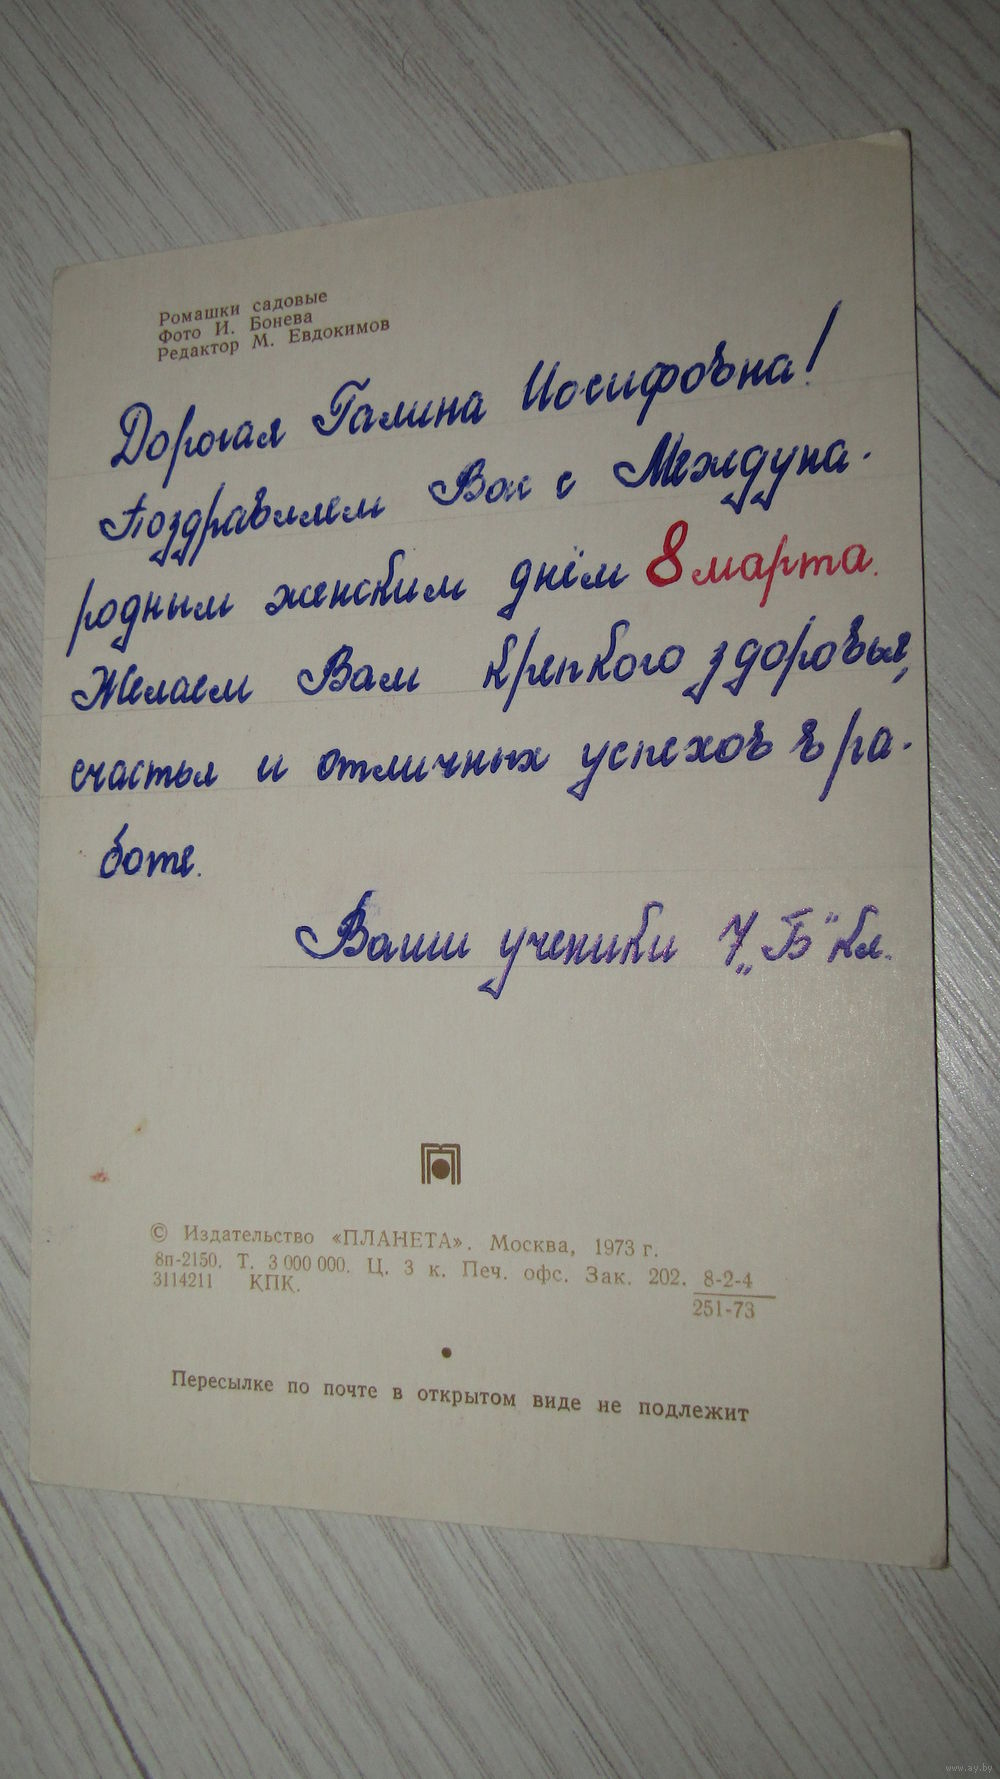 Ромашки садовые
Фото И. Бонева
Редактор М. Евдокимов
Дорогая Галина Иосифовна!
Поздравляем Вас с Междуна-
родным женским днём 8 марта.
Желаем Вам крепкого здоровья,
счастья и отличных успехов в ра-
боте.
Ваши ученики 7 „Б“ кл.
© Издательство «ПЛАНЕТА». Москва, 1973 г.
8п-2150. Т. 3 000 000. Ц. 3 к. Печ. офс. Зак. 202. 8-2-4
3114211 КПК. 251-73
Пересылке по почте в открытом виде не подлежит
www.ay.by